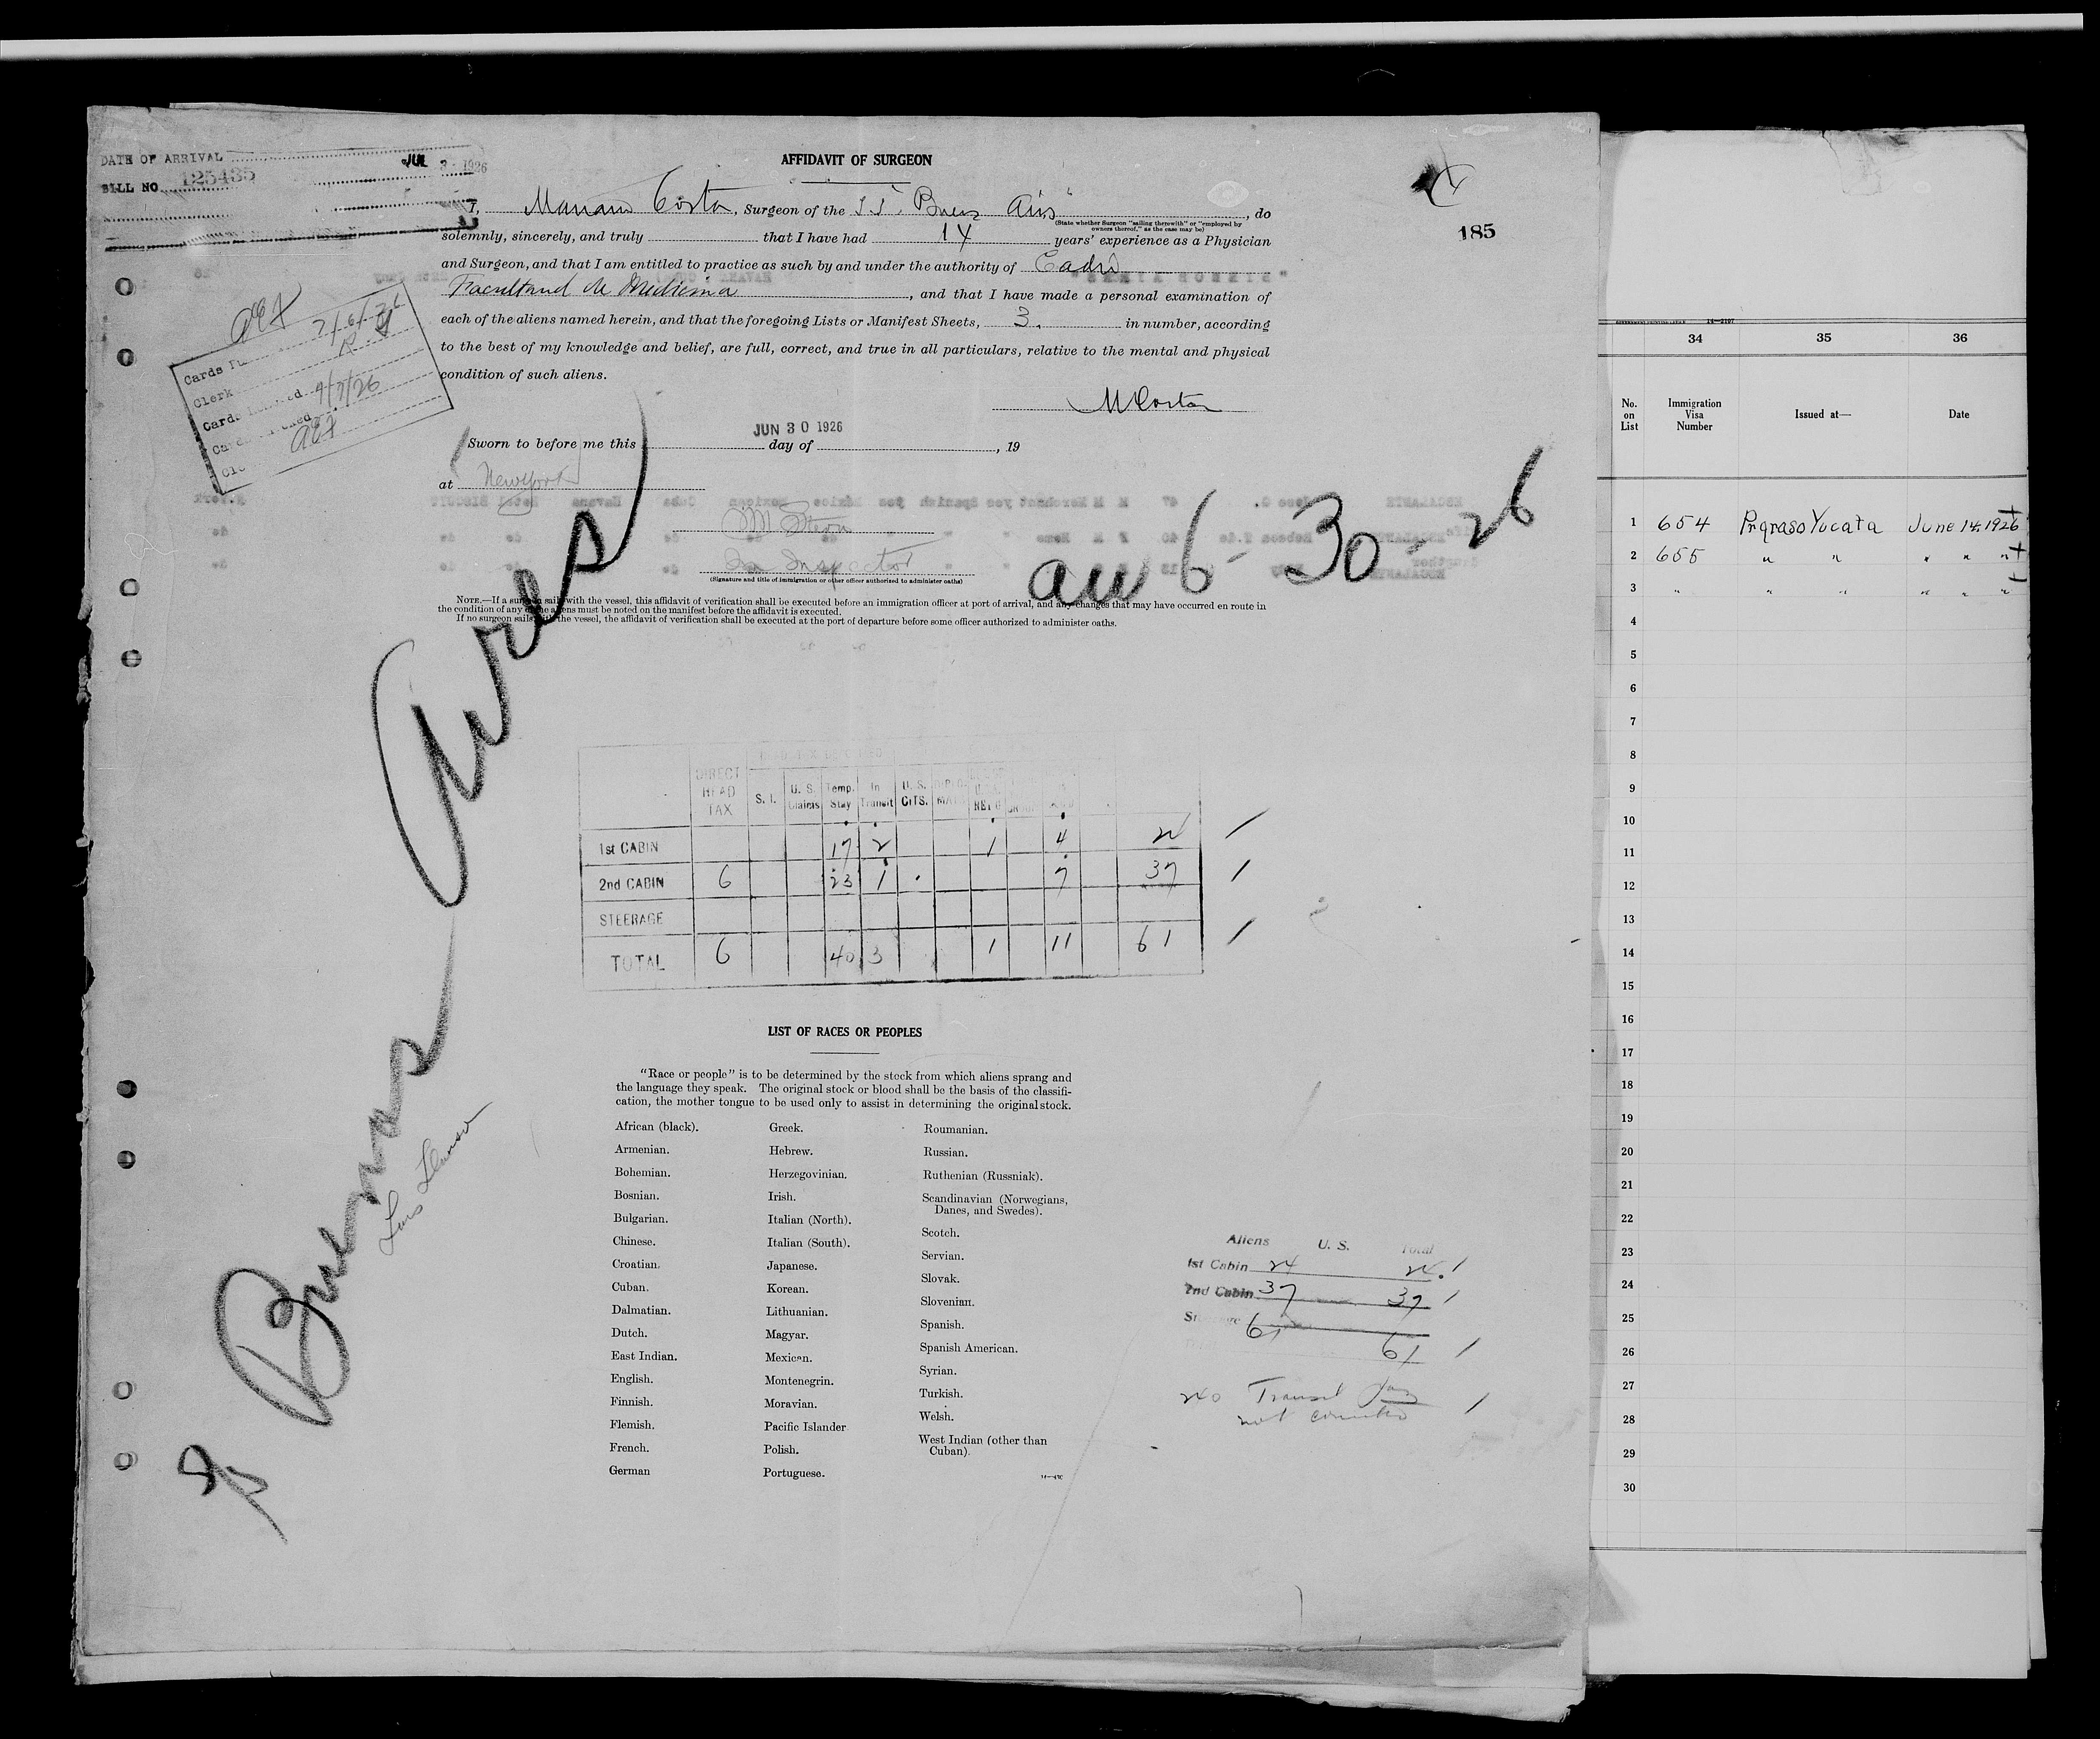 DATE OF ARRIVAL JUL 3 - 1926
BILL NO. 125435
AFFIDAVIT OF SURGEON
185
I, Mariano Costa, Surgeon of the S.S. "Buenos Aires", do
(State whether Surgeon "sailing therewith" or "employed by
owners thereof," as the case may be)
solemnly, sincerely, and truly that I have had 14 years' experience as a Physician
and Surgeon, and that I am entitled to practice as such by and under the authority of
de Medicina, and that I have made a personal examination of
each of the aliens named herein, and that the foregoing Lists or Manifest Sheets, 3. in number, according
to the best of my knowledge and belief, are full, correct, and true in all particulars, relative to the mental and physical
condition of such aliens.
M Costa
Cards
Clerk
Cards 7/7/26
Sworn to before me this JUN 30 1926 day of , 19
at New York
M Stern
Inspector
(Signature and title of immigration or other officer authorized to administer oaths)
6-30-26
NOTE.—If a surgeon sails with the vessel, this affidavit of verification shall be executed before an immigration officer at port of arrival, and any changes that may have occurred en route in
the condition of any of the aliens must be noted on the manifest before the affidavit is executed.
If no surgeon sails with the vessel, the affidavit of verification shall be executed at the port of departure before some officer authorized to administer oaths.
SS Buenos Aires
Luis
DIRECT HEAD TAX S. I. U. S. Claims Temp. Stay In Transit U. S. CITS.
1st CABIN 17 2 1 4 24
2nd CABIN 6 23 1 7 37
STEERAGE
TOTAL 6 40 3 1 11 61
LIST OF RACES OR PEOPLES
"Race or people" is to be determined by the stock from which aliens sprang and
the language they speak. The original stock or blood shall be the basis of the classifi-
cation, the mother tongue to be used only to assist in determining the original stock.
African (black). Greek. Roumanian.
Armenian. Hebrew. Russian.
Bohemian. Herzegovinian. Ruthenian (Russniak).
Bosnian. Irish. Scandinavian (Norwegians,
Danes, and Swedes).
Bulgarian. Italian (North). Scotch.
Chinese. Italian (South). Servian.
Croatian. Japanese. Slovak.
Cuban. Korean. Slovenian.
Dalmatian. Lithuanian. Spanish.
Dutch. Magyar. Spanish American.
East Indian. Mexican. Syrian.
English. Montenegrin. Turkish.
Finnish. Moravian. Welsh.
Flemish. Pacific Islander West Indian (other than
Cuban).
French. Polish.
German Portuguese.
Aliens U. S. Total
1st Cabin 24 24
2nd Cabin 37 37
61 61
Transit
not counted
34 35 36
No. on List Immigration Visa Number Issued at— Date
1 654 Prgraso Yucata June 14, 1926
2 655 " " " " "
3 " " " " " "
4
5
6
7
8
9
10
11
12
13
14
15
16
17
18
19
20
21
22
23
24
25
26
27
28
29
30